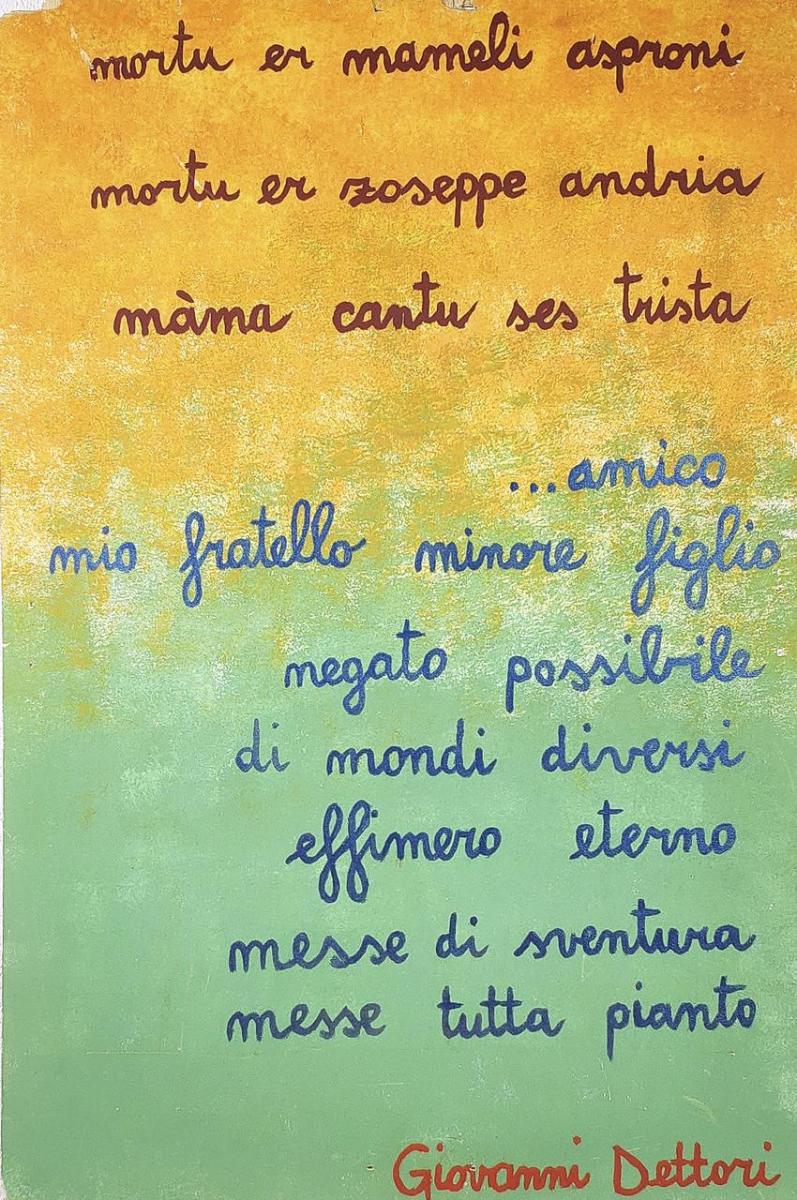 mortu er mameli asproni
mortu er zoseppe andria
màma cantu ses trista
...amico
mio fratello minore figlio
negato possibile
di mondi diversi
effimero eterno
messe di sventura
messe tutta pianto
Giovanni Dettori